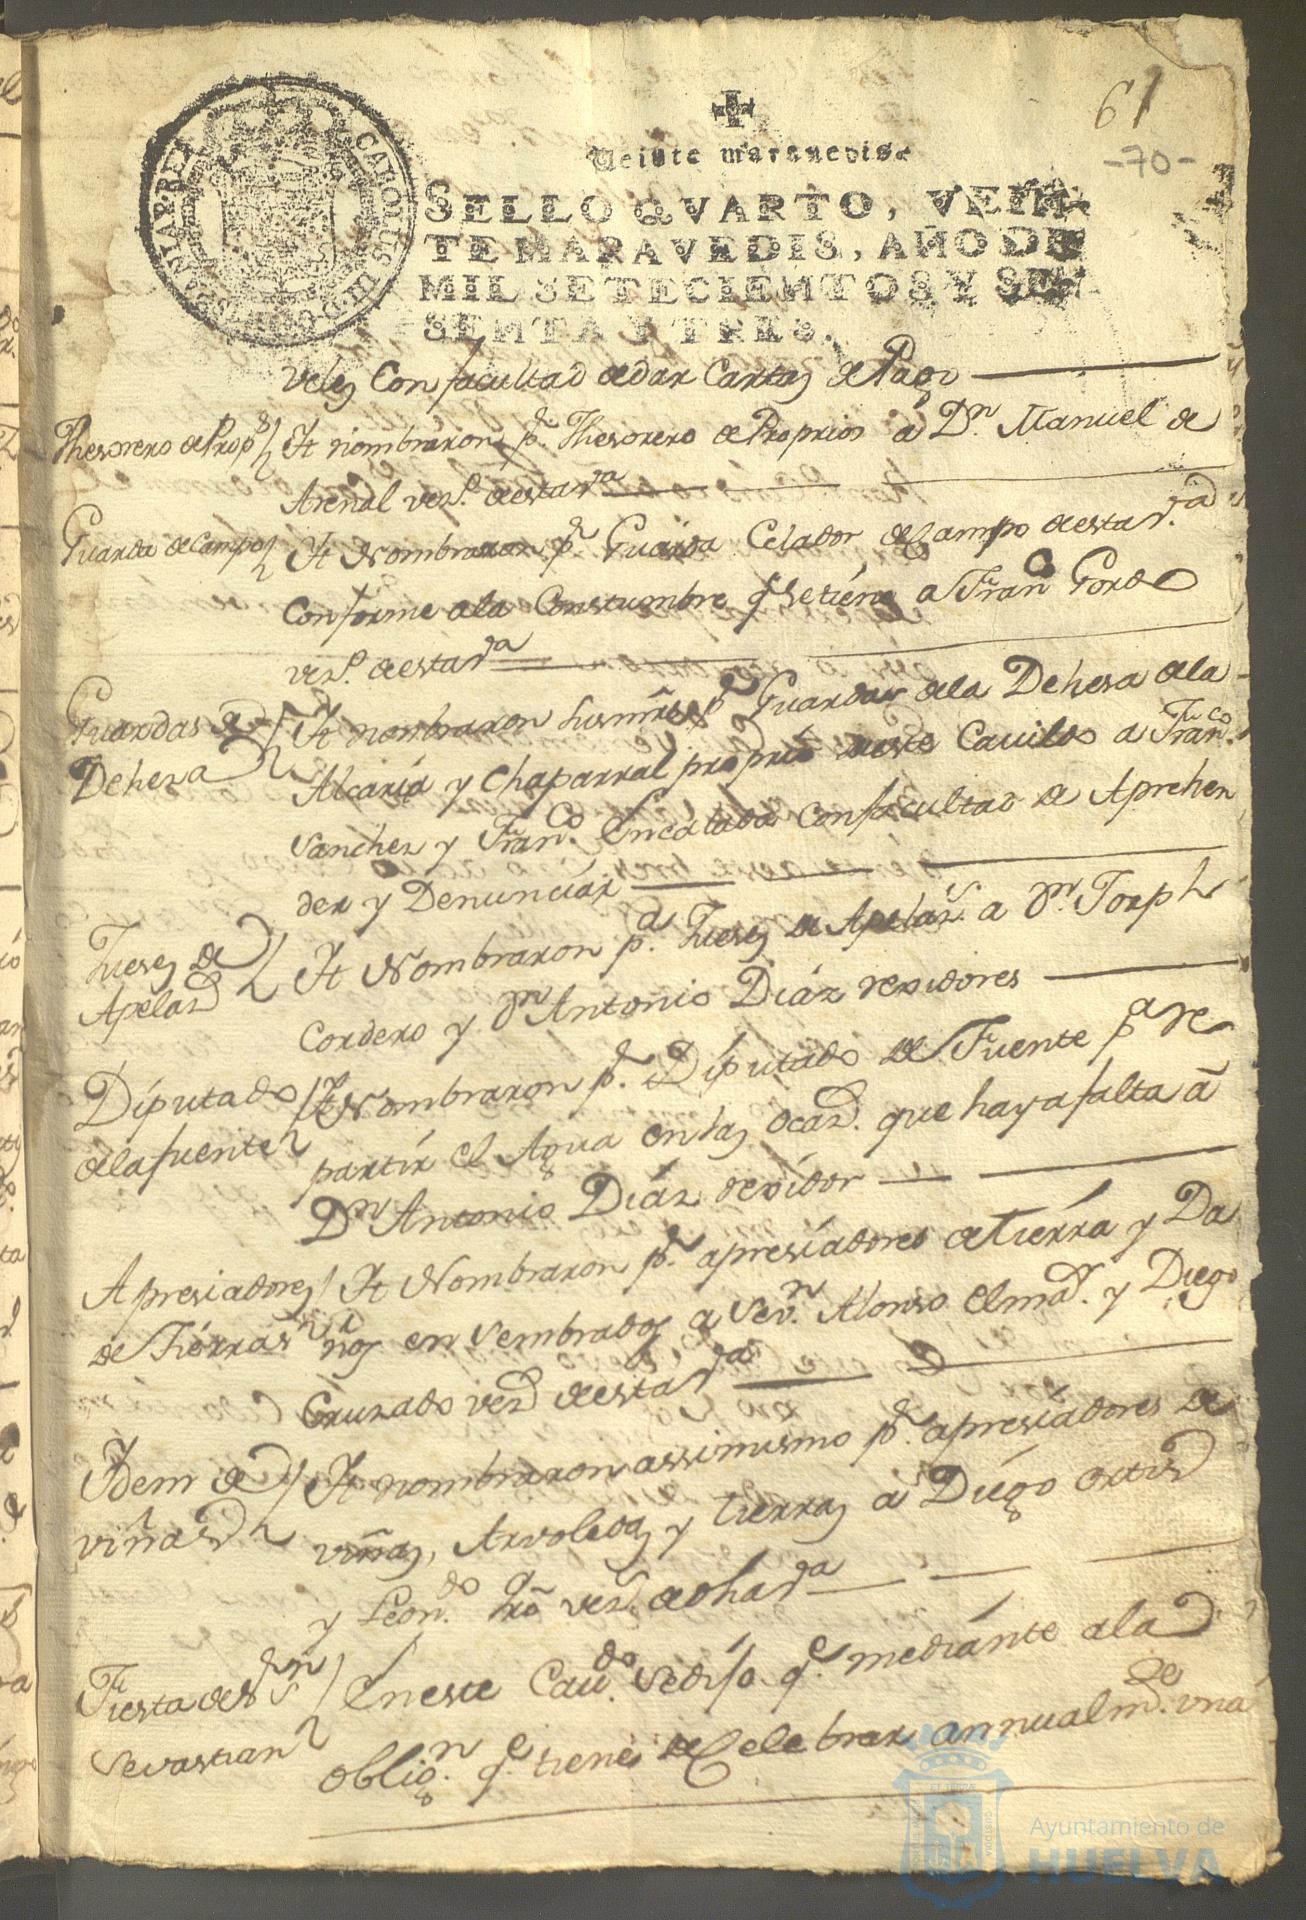 61
-70-
Veinte maravedis
SELLO QVARTO, VEIN
TE MARAVEDIS, AÑO DE
MIL SETECIENTOS Y SE
SENTA Y TRES.
CAROLUS III D
velez Con facultad de dar Cartas de Pago
Thesorero de Prop.s
Yt nombraron p.r Thesorero de Proprios a D.n Manuel de
Arenal vez.o de esta v.a
Guarda de Campo
Yt Nombraron p.r Guarda Celador del Campo de esta v.a
Conforme a la Constumbre q.e se tiene a Fran.co Gordo
vez.o de esta v.a
Guardas de
Dehesa
Yt nombraron p.r Guardas de la Dehesa de la
Alcaria y Chaparral proprio de este Cavildo a Fran.co
Sanchez y Fran.co Encalada Con facultad de Aprehen
der y Denunciar
Juezes de
Apelaz.
Yt Nombraron p.a Juezes de Apelaz.s a D.n Josph
Cordero y D.n Antonio Diaz rexidores
Diputado
de la fuente
Yt Nombraron p.r Diputado de Fuente p.a re
partir el Agua en las ocaz. que haya falta a
D.n Antonio Diaz rexidor
Apresiadores
de Tierras
Yt Nombraron p.r apresiadores de Tierra y Da
ños en Sembrados a Alonso y Diego
Cruzado vez.s de esta v.a
Ydem de
viñas
Yt nombraron assimismo p.r apresiadores de
viñas, Arvoledas y tierras a Diego ortis
y Leon.do vez.s de dha v.a
Fiesta de S.n
Sevastian
En este Cav.do se dijo q.e mediante a la
oblig.n q.e tiene de Celebrar annualm.te una
Ayuntamiento de
HUELVA